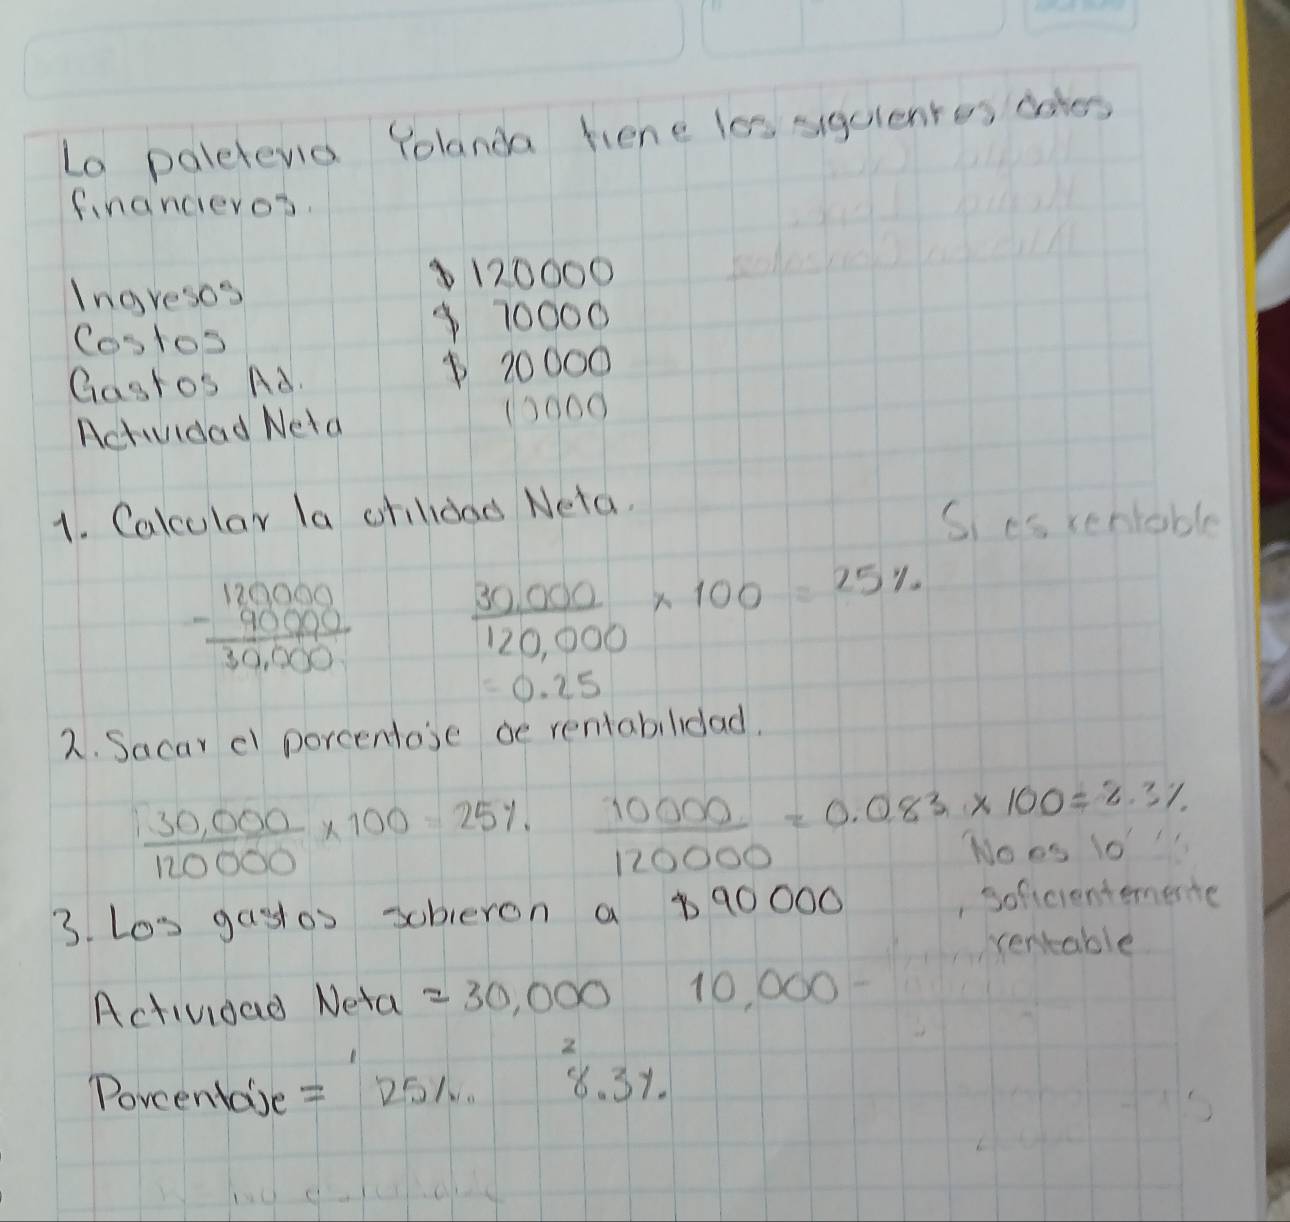 La paletería Yolanda tiene los siguientes datos
financieros.
Ingresos $ 120000
Costos $ 70000
Gastos Ad. $ 20000
Actividad Neta 10000
1. Calcular la utilidad Neta.
Si es rentable
120000
- 90000
30,000
30,000 / 120,000 × 100 = 25%.
= 0.25
2. Sacar el porcentaje de rentabilidad.
30,000 / 120000 × 100 = 25%. 10000 / 120000 = 0.083 × 100 = 8.3%.
No es lo
suficientemente
rentable
3. Los gastos subieron a $ 90000
Actividad Neta = 30,000 10,000
Porcentaje = 1 25%. 2 8.3%.